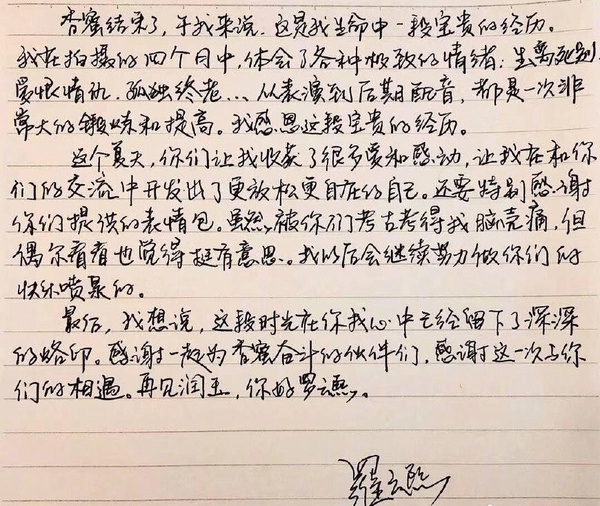 香蜜结束了，于我来说，这是我生命中一段宝贵的经历。
我在拍摄的四个月中，体会了各种极致的情绪：生离死别
爱恨情仇，孤独终老...从表演到后期配音，都是一次非
常大的锻炼和提高。我感恩这段宝贵的经历。
这个夏天，你们让我收获了很多爱和感动，让我在和你
们的交流中开发出了更放松更自在的自己。还要特别感谢
你们提供的表情包。虽然被你们考古考得我脑壳痛，但
偶尔看看也觉得挺有意思。我以后会继续努力做你们的
快乐喷泉的。
最后，我想说，这段时光在你我心中已经留下了深深
的烙印。感谢一起为香蜜奋斗的伙伴们，感谢这一次与你
们的相遇。再见润玉，你好罗云熙。
羅云熙